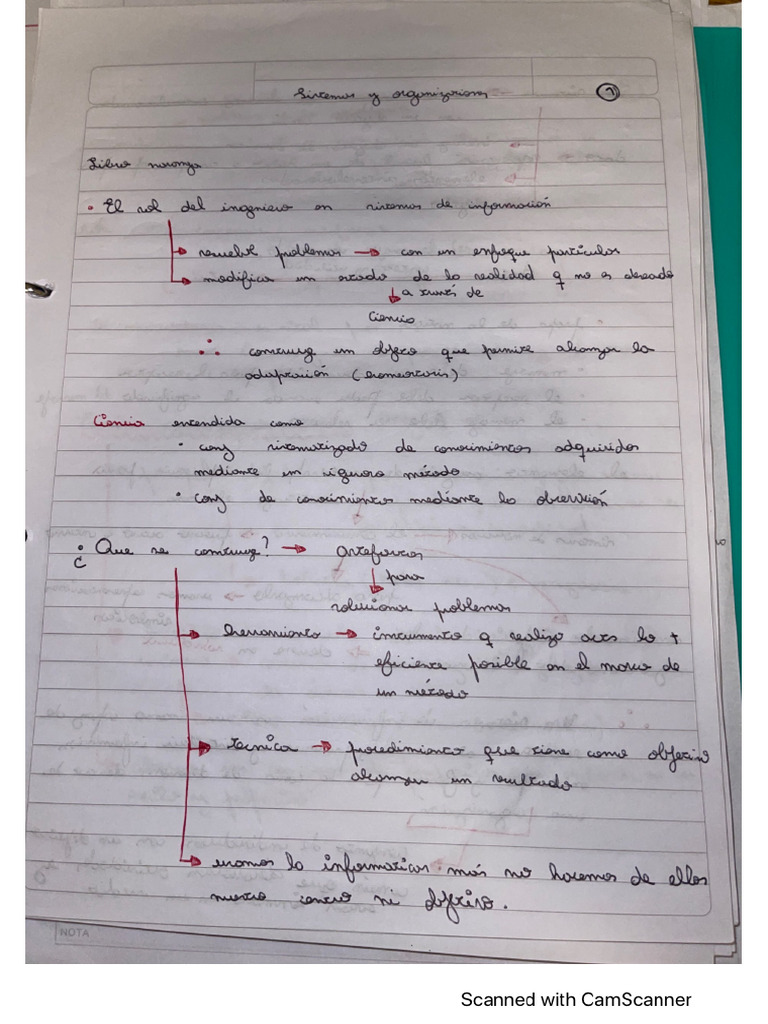 Sistemas y organizaciones 1
Libro naranja
• El rol del ingeniero en sistemas de información
→ resuelve problemas → con un enfoque particular
→ modifica un estado de la realidad q no es deseado
↓ a través de
Ciencia
∴ construye un objeto que permite alcanzar la
adaptación (homeostasis)
Ciencia entendida como
• conj sistematizado de conocimientos adquiridos
mediante un riguroso método
• conj de conocimientos mediante la observación
¿Que se construye? → artefactos
↓ para
solucionar problemas
→ herramienta → instrumento q realiza acts lo +
eficiente posible en el marco de
un método
→ tecnica → procedimiento que tiene como objetivo
alcanzar un resultado
→ usamos la informatica más no hacemos de ellos
nuestro centro ni objetivo.
NOTA
Scanned with CamScanner